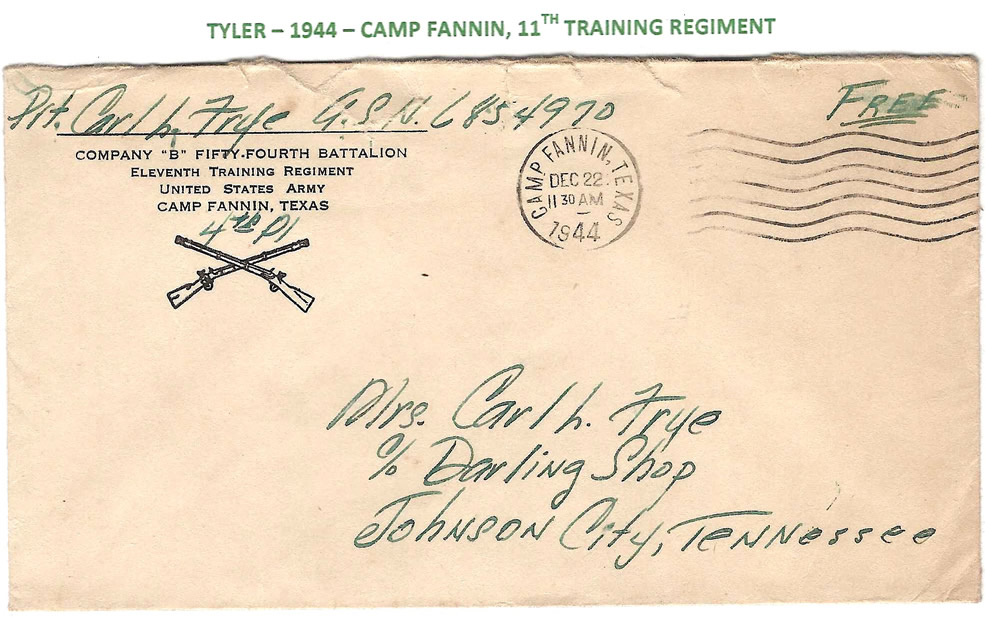 TYLER – 1944 – CAMP FANNIN, 11TH TRAINING REGIMENT
Pvt. Carl L. Frye A.S.N. 6854970
COMPANY "B" FIFTY-FOURTH BATTALION
ELEVENTH TRAINING REGIMENT
UNITED STATES ARMY
CAMP FANNIN, TEXAS
4th Pl
CAMP FANNIN, TEXAS
DEC 22.
11 30 AM
1944
FREE
Mrs. Carl L. Frye
% Darling Shop
Johnson City, Tennessee